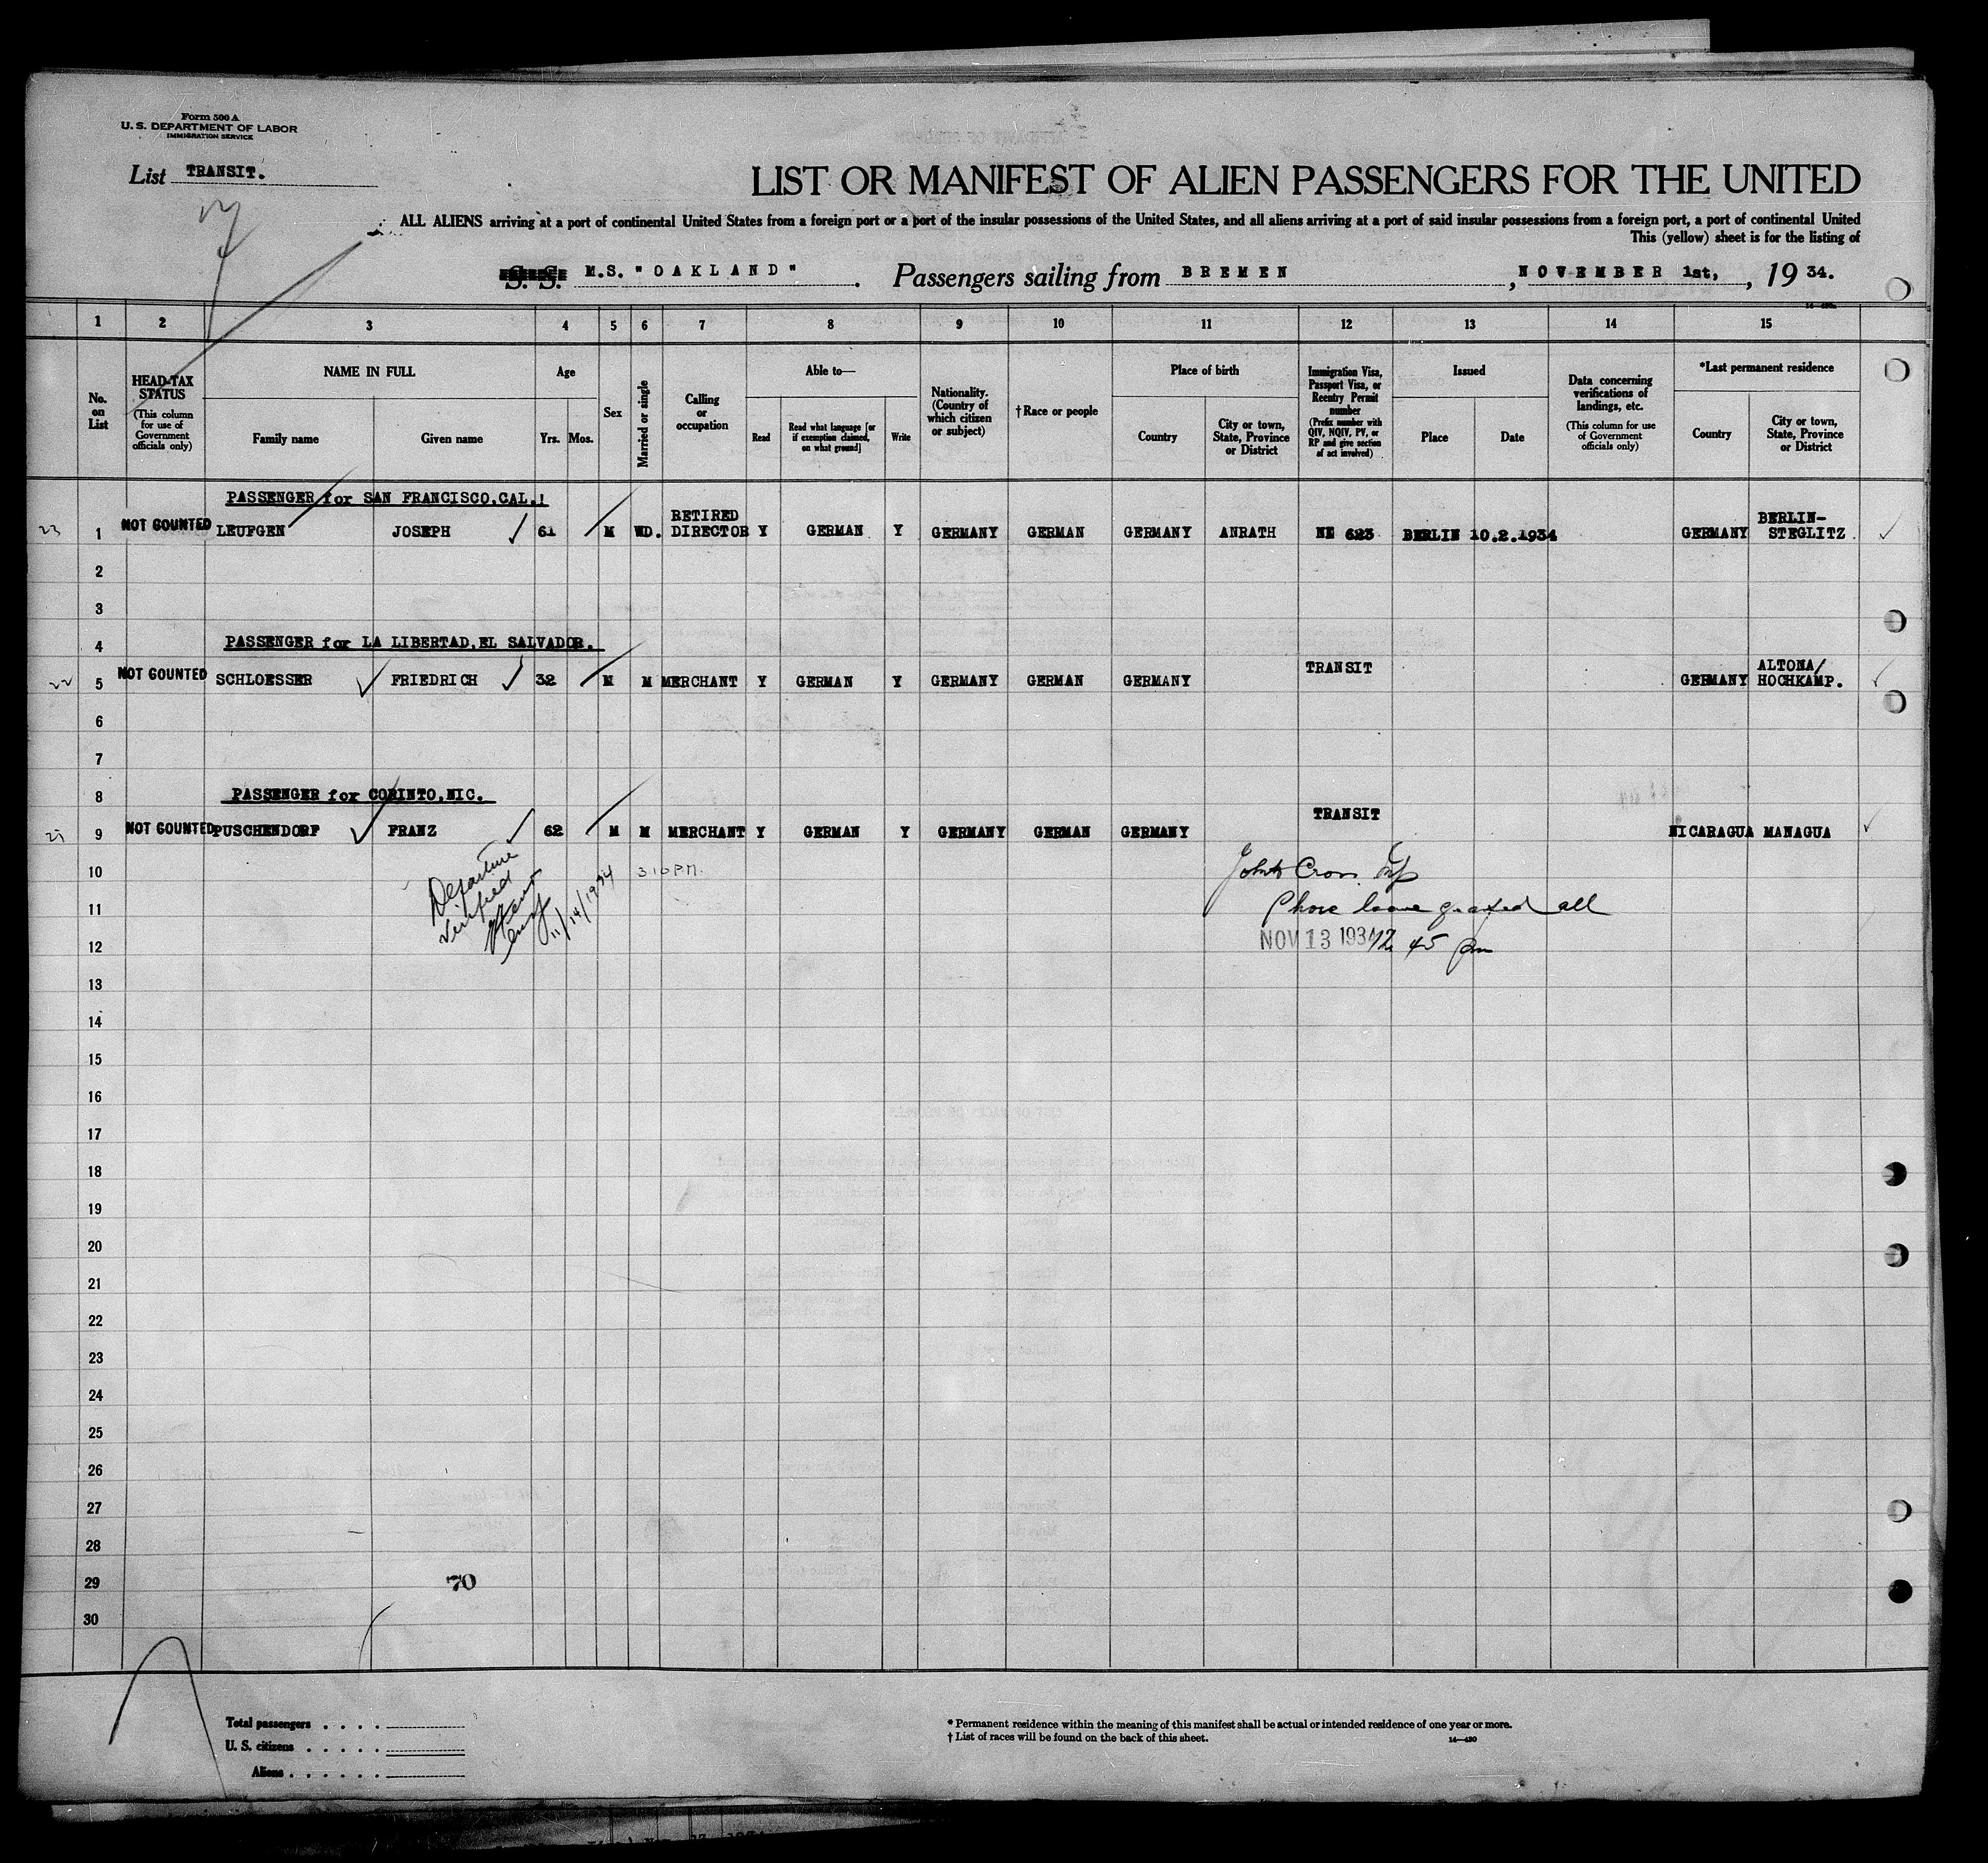 Form 500 A
U. S. DEPARTMENT OF LABOR
IMMIGRATION SERVICE
List TRANSIT.
LIST OR MANIFEST OF ALIEN PASSENGERS FOR THE UNITED
ALL ALIENS arriving at a port of continental United States from a foreign port or a port of the insular possessions of the United States, and all aliens arriving at a port of said insular possessions from a foreign port, a port of continental United
This (yellow) sheet is for the listing of
S. S. M.S. "OAKLAND". Passengers sailing from BREMEN, NOVEMBER 1st, 1934.
1 2 3 4 5 6 7 8 9 10 11 12 13 14 15
No. on List
HEAD-TAX STATUS
(This column for use of Government officials only)
NAME IN FULL
Family name
Given name
Age
Yrs. Mos.
Sex
Married or single
Calling or occupation
Able to—
Read
Read what language [or if exemption claimed, on what ground]
Write
Nationality. (Country of which citizen or subject)
† Race or people
Place of birth
Country
City or town, State, Province or District
Immigration Visa, Passport Visa, or Reentry Permit number
(Prefix number with QIV, NQIV, PV, or RP and give section of act involved)
Issued
Place
Date
Data concerning verifications of landings, etc.
(This column for use of Government officials only)
*Last permanent residence
Country
City or town, State, Province or District
PASSENGER for SAN FRANCISCO,CAL.!
23 1 NOT COUNTED LEUFGEN JOSEPH 61 M WD. RETIRED DIRECTOR Y GERMAN Y GERMANY GERMAN GERMANY ANRATH 623 BERLIN 10.2.1934 GERMANY BERLIN-STEGLITZ
2
3
4 PASSENGER for LA LIBERTAD,EL SALVADOR.
22 5 NOT COUNTED SCHLOESSER FRIEDRICH 32 M M MERCHANT Y GERMAN Y GERMANY GERMAN GERMANY TRANSIT GERMANY ALTONA/HOCHKAMP.
6
7
8 PASSENGER for CORINTO,NIC.
9 NOT COUNTED PUSCHENDORF FRANZ 62 M M MERCHANT Y GERMAN Y GERMANY GERMAN GERMANY TRANSIT NICARAGUA MANAGUA
10 3 10 P.M.
Departure
verified
11/14/1934
11 Shore leave granted all
12 NOV 13 1934 12 45 pm
13
14
15
16
17
18
19
20
21
22
23
24
25
26
27
28
29 70
30
Total passengers
U. S. citizens
Aliens
* Permanent residence within the meaning of this manifest shall be actual or intended residence of one year or more.
† List of races will be found on the back of this sheet.
14—430